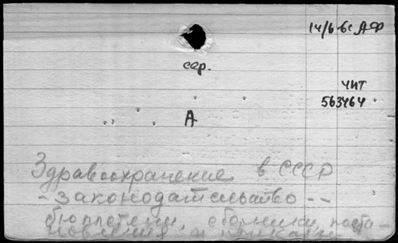 14/6-61 АФ
сер.
ЧИТ
563464
А
Здравоохранение в СССР
- законодательство --
бюллетени, сборники, поста-
новления и приказы